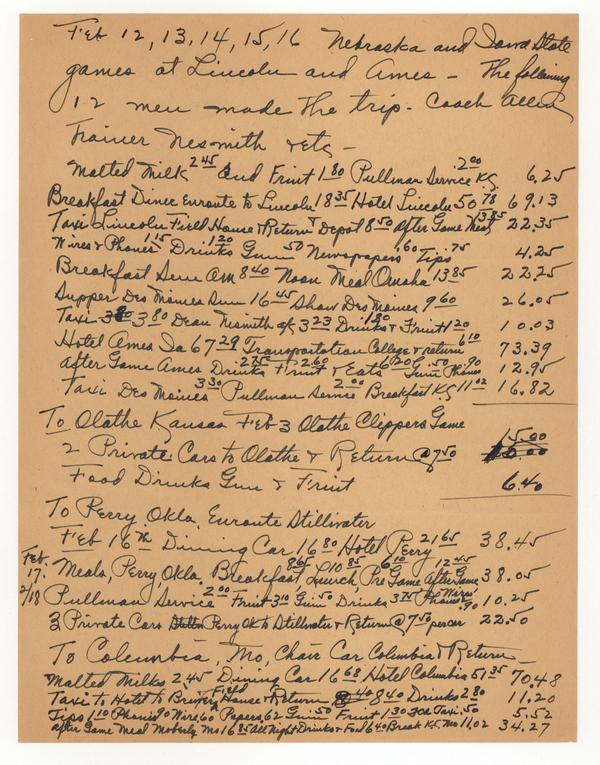 Feb 12, 13, 14, 15, 16 Nebraska and Iowa State
games at Lincoln and Ames - The following
12 men made the trip - Coach Allen
Trainer Nesmith & etc -
Malted Milk 2 45 and Fruit 1 80 Pullman Service K.C. 2 00 6.25
Breakfast Diner Enroute to Lincoln 18 35 Hotel Lincoln 50 78 69.13
Taxi Lincoln Field House & Return & Depot 8 50 After Game Meal 13 85 22.35
Wires & Phones 1 15 Drinks 1 20 Gum 50 Newspapers 60 Tips 75 4.25
Breakfast Sun AM 8 40 Noon Meal Omaha 13 85 22.25
Supper Des Moines Sun 16 45 Show Des Moines 9 60 26.05
Taxi 3 80 Dean Nesmith 3 23 Drinks & Fruit 1 80 1 20 10.03
Hotel Ames Ia 67 29 Transportation College & return 6 10 73.39
After Game Ames Drinks 2 75 Fruit 2 60 & Eats 6 20 Gum .50 Phones .90 12.95
Taxi Des Moines 3 30 Pullman Service 2 00 Breakfast K.C. 11 02 16.82
To Olathe Kansas Feb 3 Olathe Clippers Game
2 Private Cars to Olathe & Return @ 7 50 15.00
Food Drinks Gum & Fruit 6.40
To Perry Okla, Enroute Stillwater
Feb 16th Dining Car 16 80 Hotel Perry 21 65 38.45
Feb. 17. Meals, Perry Okla. Breakfast 8 65 Lunch 10 85 Pre Game 6 10 After Game 12 45 38.05
2/18 Pullman Service 2 00 Fruit 3 10 Gum 50 Drinks 3 75 Phones & Wires .90 10.25
3 Private Cars Perry Ok to Stillwater & Return @ 7 50 per car 22.50
To Columbia, Mo, Chair Car Columbia & Return
Malted Milks 2 45 Dining Car 16 68 Hotel Columbia 51 35 70.48
Taxi to Hotel to Brewer Field House & Return 8 40 Drinks 2 80 11.20
Tips 1 10 Phones 90 Wire .60 Papers .62 Gum .50 Fruit 1 30 Taxi .50 5.52
After Game Meal Moberly Mo 16 85 All Night Drinks & Food 6 40 Break K.C. Mo 11.02 34.27